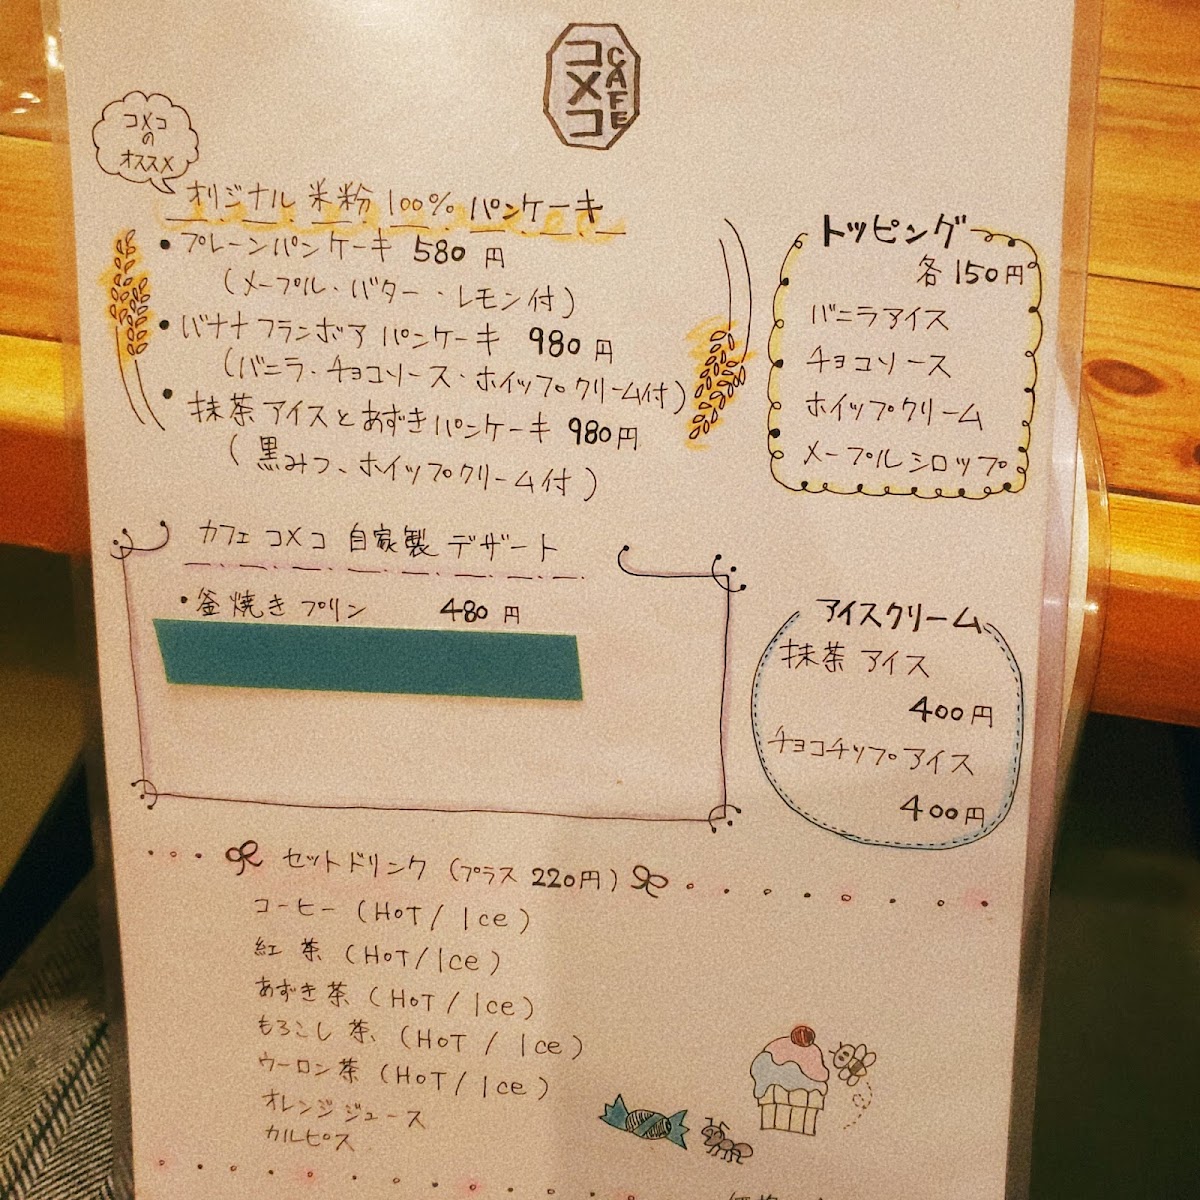 コメコ
CAFE
コメコ
の
オススメ
オリジナル 米粉 100% パンケーキ
・プレーンパンケーキ 580 円
(メープル・バター・レモン付)
・バナナフランボア パンケーキ 980 円
(バニラ・チョコソース・ホイップクリーム付)
・抹茶アイスとあずきパンケーキ 980円
(黒みつ、ホイップクリーム付)
トッピング
各 150円
バニラアイス
チョコソース
ホイップクリーム
メープルシロップ
カフェ コメコ 自家製 デザート
・釜焼きプリン 480 円
アイスクリーム
抹茶 アイス
400円
チョコチップアイス
400円
セットドリンク (プラス 220円)
コーヒー (HoT / Ice)
紅茶 (HoT / Ice)
あずき茶 (HoT / Ice)
もろこし茶 (HoT / Ice)
ウーロン茶 (HoT / Ice)
オレンジジュース
カルピス